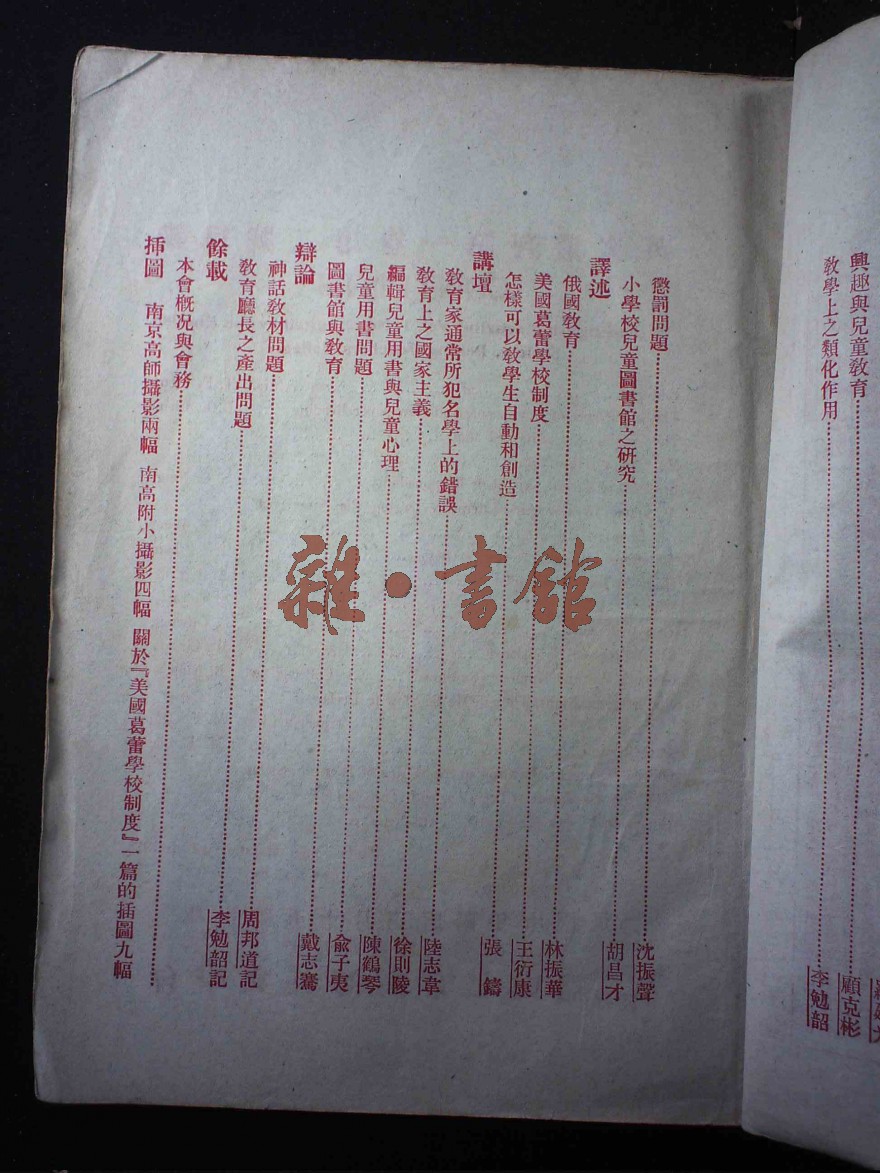 興趣與兒童教育……顧克彬
教學上之類化作用……李勉韶
懲罰問題……沈振聲
小學校兒童圖書館之研究……胡昌才
譯述
俄國教育……林振華
美國葛蕾學校制度……王衍康
怎樣可以教學生自動和創造……張鑄
講壇
教育家通常所犯名學上的錯誤……陸志韋
教育上之國家主義……徐則陵
編輯兒童用書與兒童心理……陳鶴琴
兒童用書問題……俞子夷
圖書館與教育……戴志騫
辯論
神話教材問題……周邦道記
教育廳長之產出問題……李勉韶記
餘載
本會概況與會務……
插圖 南京高師攝影兩幅 南高附小攝影四幅 關於『美國葛蕾學校制度』一篇的插圖九幅
雜·書館